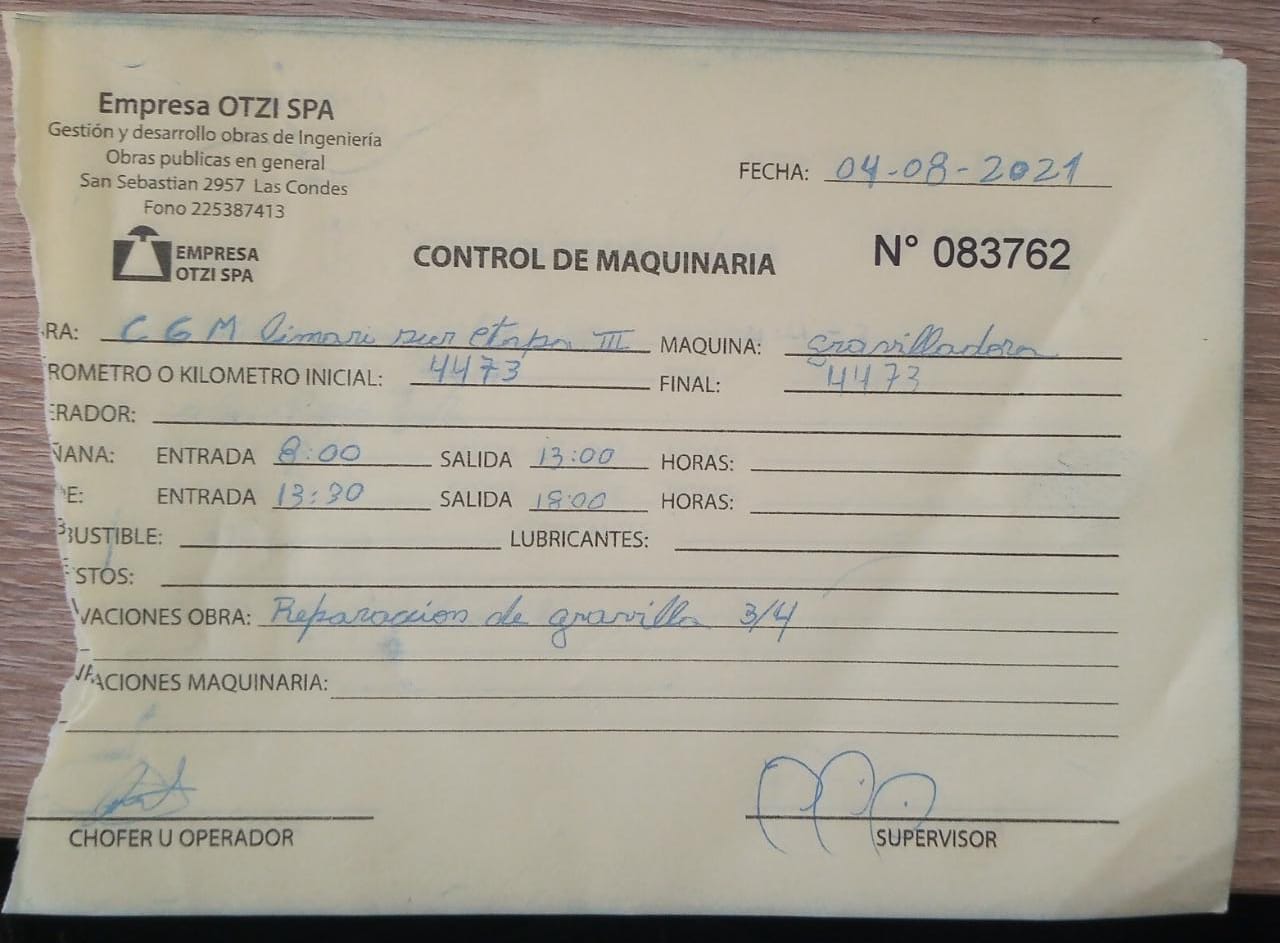 Empresa OTZI SPA
Gestión y desarrollo obras de Ingeniería
Obras publicas en general
San Sebastian 2957 Las Condes
Fono 225387413
FECHA: 04-08-2021
EMPRESA
OTZI SPA
CONTROL DE MAQUINARIA
N° 083762
RA: C G M limari sur etapa III MAQUINA: gravilladora
ROMETRO O KILOMETRO INICIAL: 4473 FINAL: 4473
ERADOR:
ÑANA: ENTRADA 8:00 SALIDA 13:00 HORAS:
E: ENTRADA 13:30 SALIDA 18:00 HORAS:
BUSTIBLE: LUBRICANTES:
STOS:
VACIONES OBRA: Reparacion de gravilla 3/4
VACIONES MAQUINARIA:
CHOFER U OPERADOR SUPERVISOR